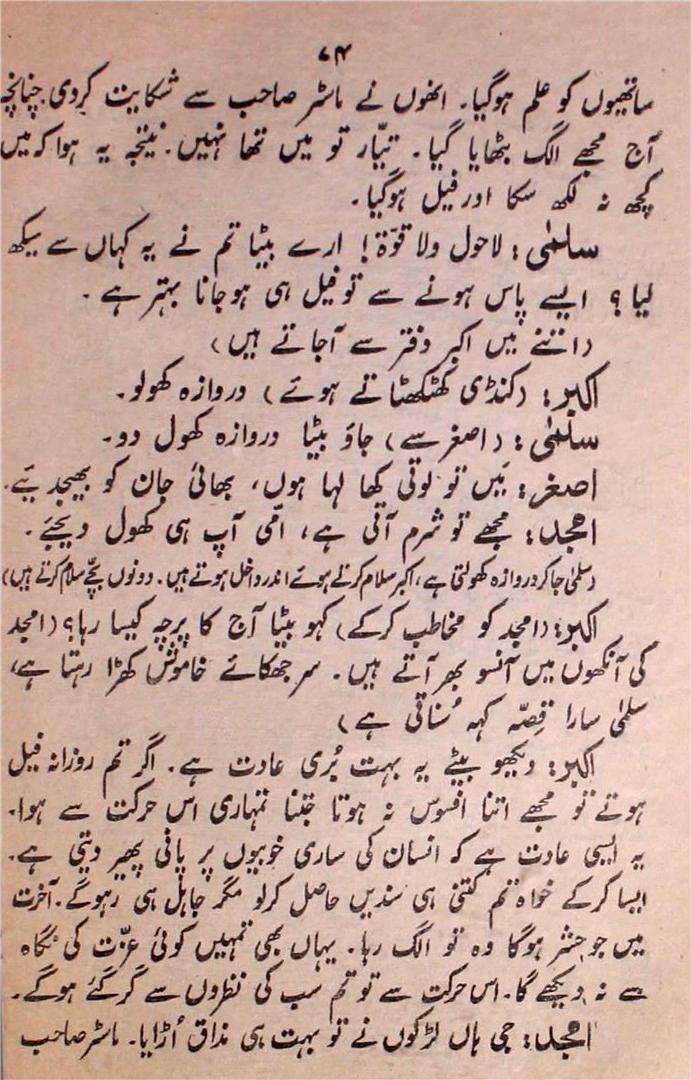 ۷۴
ساتھیوں کو علم ہوگیا۔ انھوں نے ماسٹر صاحب سے شکایت کردی چنانچہ
آج مجھے الگ بٹھایا گیا۔ تیّار تو میں تھا نہیں۔ نتیجہ یہ ہوا کہ میں
کچھ نہ لکھ سکا اور فیل ہوگیا۔
سلمٰی: لاحول ولا قوّۃ! ارے بیٹا تم نے یہ کہاں سے سیکھ
لیا؟ ایسے پاس ہونے سے تو فیل ہی ہوجانا بہتر ہے۔
(اتنے میں اکبر دفتر سے آجاتے ہیں)
اکبر: (کنڈی کھٹکھٹاتے ہوئے) دروازہ کھولو۔
سلمٰی: (اصغر سے) جاؤ بیٹا دروازہ کھول دو۔
اصغر: مَیں تو لوتی کھا لہا ہوں، بھائی جان کو بھیجدیئے۔
امجد: مجھے تو شرم آتی ہے، امّی آپ ہی کھول دیجئے۔
(سلمٰی جاکر دروازہ کھولتی ہے، اکبر سلام کرتے ہوئے اندر داخل ہوتے ہیں۔ دونوں بچّے سلام کرتے ہیں)
اکبر: (امجد کو مخاطب کرکے) کہو بیٹا آج کا پرچہ کیسا رہا؟ (امجد
کی آنکھوں میں آنسو بھر آتے ہیں۔ سر جھکائے خاموش کھڑا رہتا ہے،
سلمٰی سارا قصّہ کہہ سُناتی ہے)
اکبر: دیکھو بیٹے یہ بہت بُری عادت ہے۔ اگر تم روزانہ فیل
ہوتے تو مجھے اتنا افسوس نہ ہوتا جتنا تمہاری اس حرکت سے ہوا۔
یہ ایسی عادت ہے کہ انسان کی ساری خوبیوں پر پانی پھیر دیتی ہے۔
ایسا کرکے خواہ تم کتنی ہی سندیں حاصل کرلو مگر جاہل ہی رہوگے۔ آخرت
میں جو حشر ہوگا وہ تو الگ رہا۔ یہاں بھی تمہیں کوئی عزّت کی نگاہ
سے نہ دیکھے گا۔ اس حرکت سے تو تم سب کی نظروں سے گر گئے ہوگے۔
امجد: جی ہاں لڑکوں نے تو بہت ہی مذاق اُڑایا۔ ماسٹر صاحب